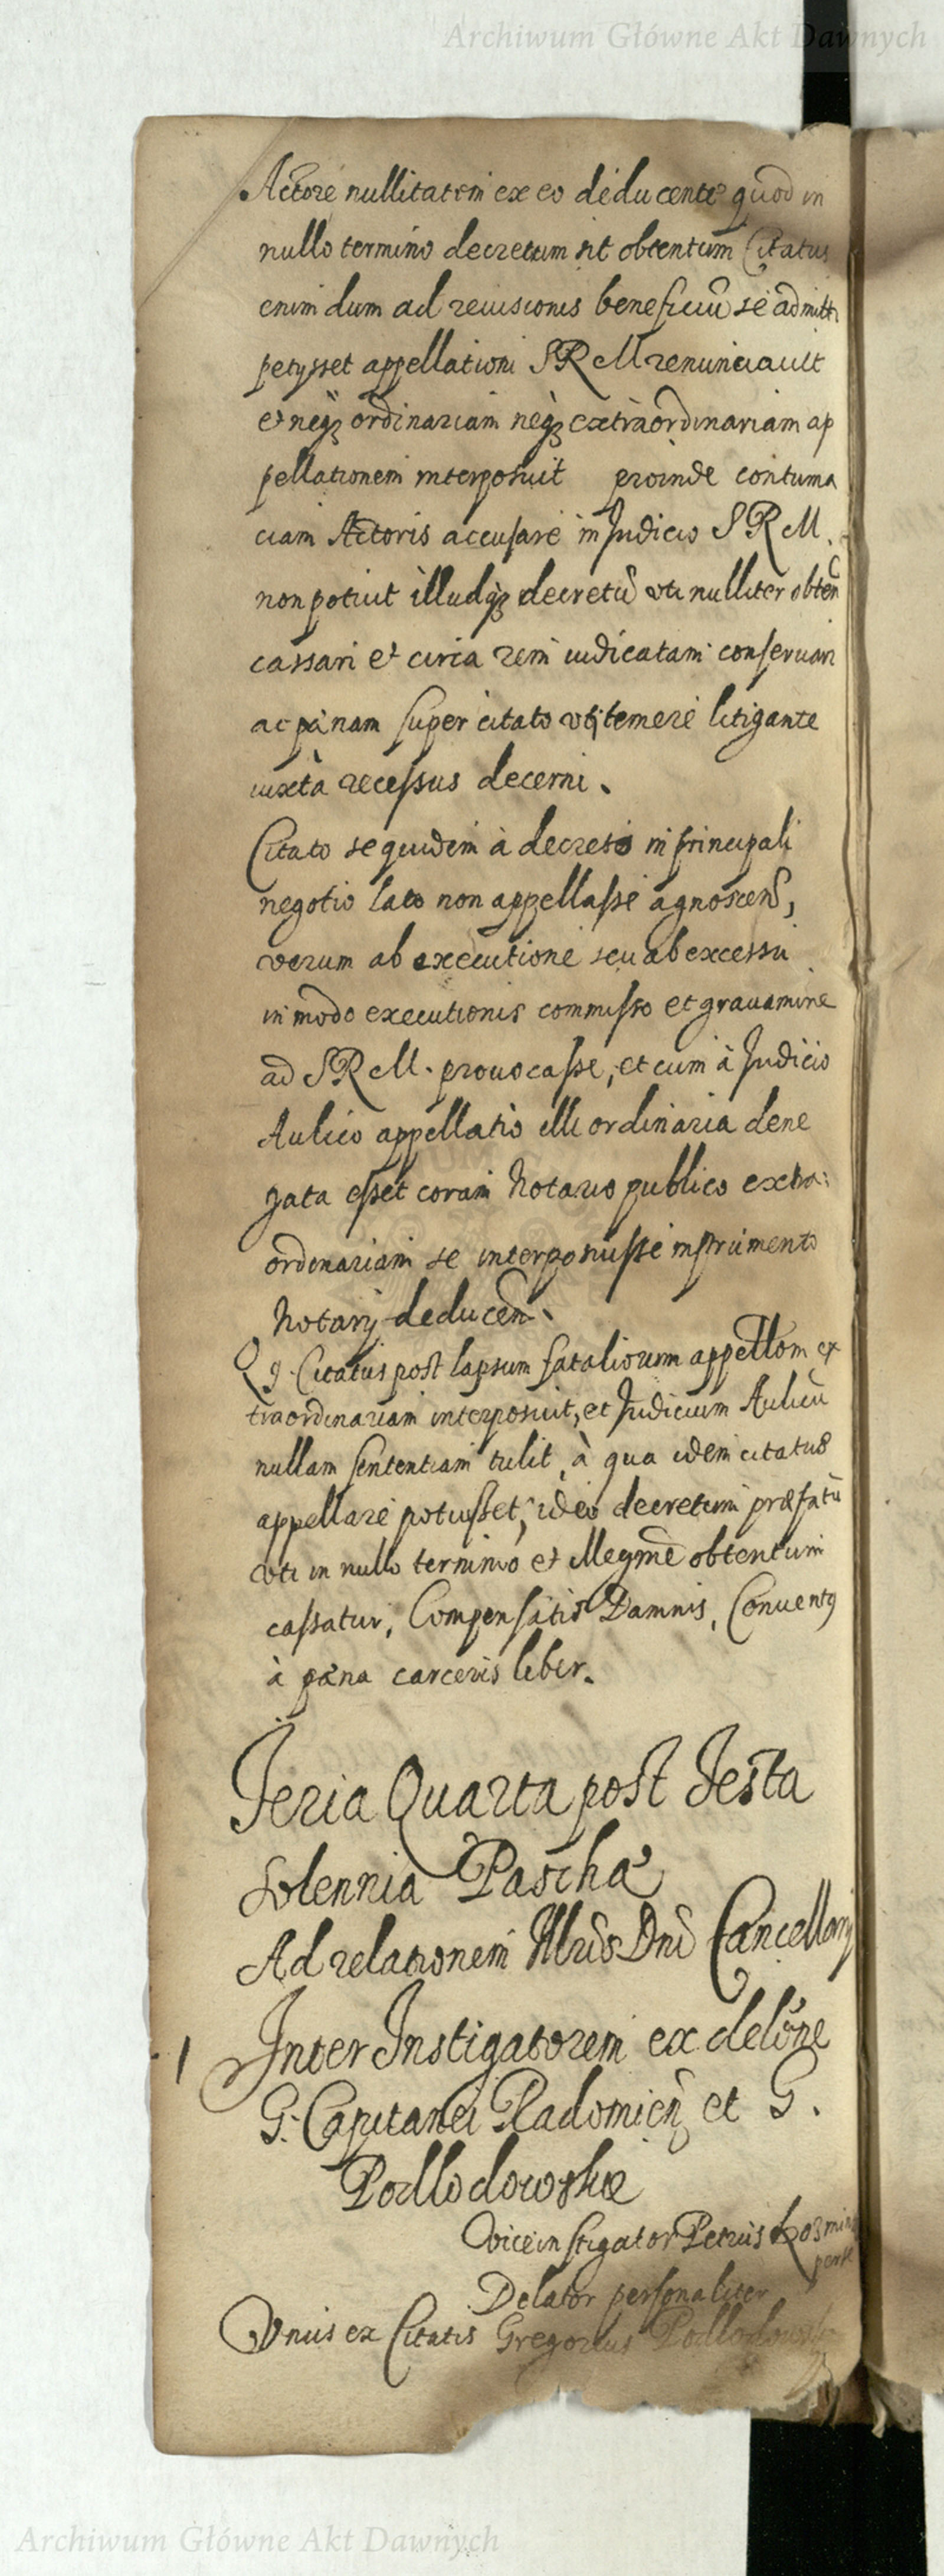 Archiwum Główne Akt Dawnych
Actore nullitatem ex eo deducente quod in
nullo termino decretum sit obtentum Citatus
enim dum ad reuisionis beneficiū se admitti
petysset appellationi S R M renunciauit
et neqꝫ ordinariam neqꝫ extraordinariam ap
pellationem interposuit proinde contuma
ciam Actoris accusare in Judicio S R M.
non potuit illudqꝫ decretū vti nulliter obten
cassari et circa rem iudicatam conseruari
ac pænam super citato vti temere litigante
iuxta recessus decerni.
Citato sequidem à decreto in principali
negotio lato non appellasse agnoscen,
verum ab executione seu ab excessu
in modo executionis commisso et grauamine
ad S R M. prouocasse, et cum à Judicio
Aulico appellatio illi ordinaria dene
gata esset coram Notario publico extra:
ordinariam se interposuisse instrumento
Notarij deducen.
Qꝫ Citatus post lapsum fataliorum appellōm ex
traordinariam interposuit, et Judicium Aulicū
nullam sententiam tulit, à qua idem citatus
appellare potuisset, ideo decretum præfatū
vti in nullo termino et illegmē obtentum
cassatur, Compensatis Damnis, Conuentꝯ
à pæna carceris liber.
Feria Quarta post Festa
Solennia Paschæ
Ad relationem Illris Dni Cancellarij
1 Inter Instigatorem ex delōne
G. Capitanei Radomien et G.
Podlodowskie
Vice instigator Petrus
Delator personaliter
Vnus ex Citatis Gregorius Podlodowski
Archiwum Główne Akt Dawnych